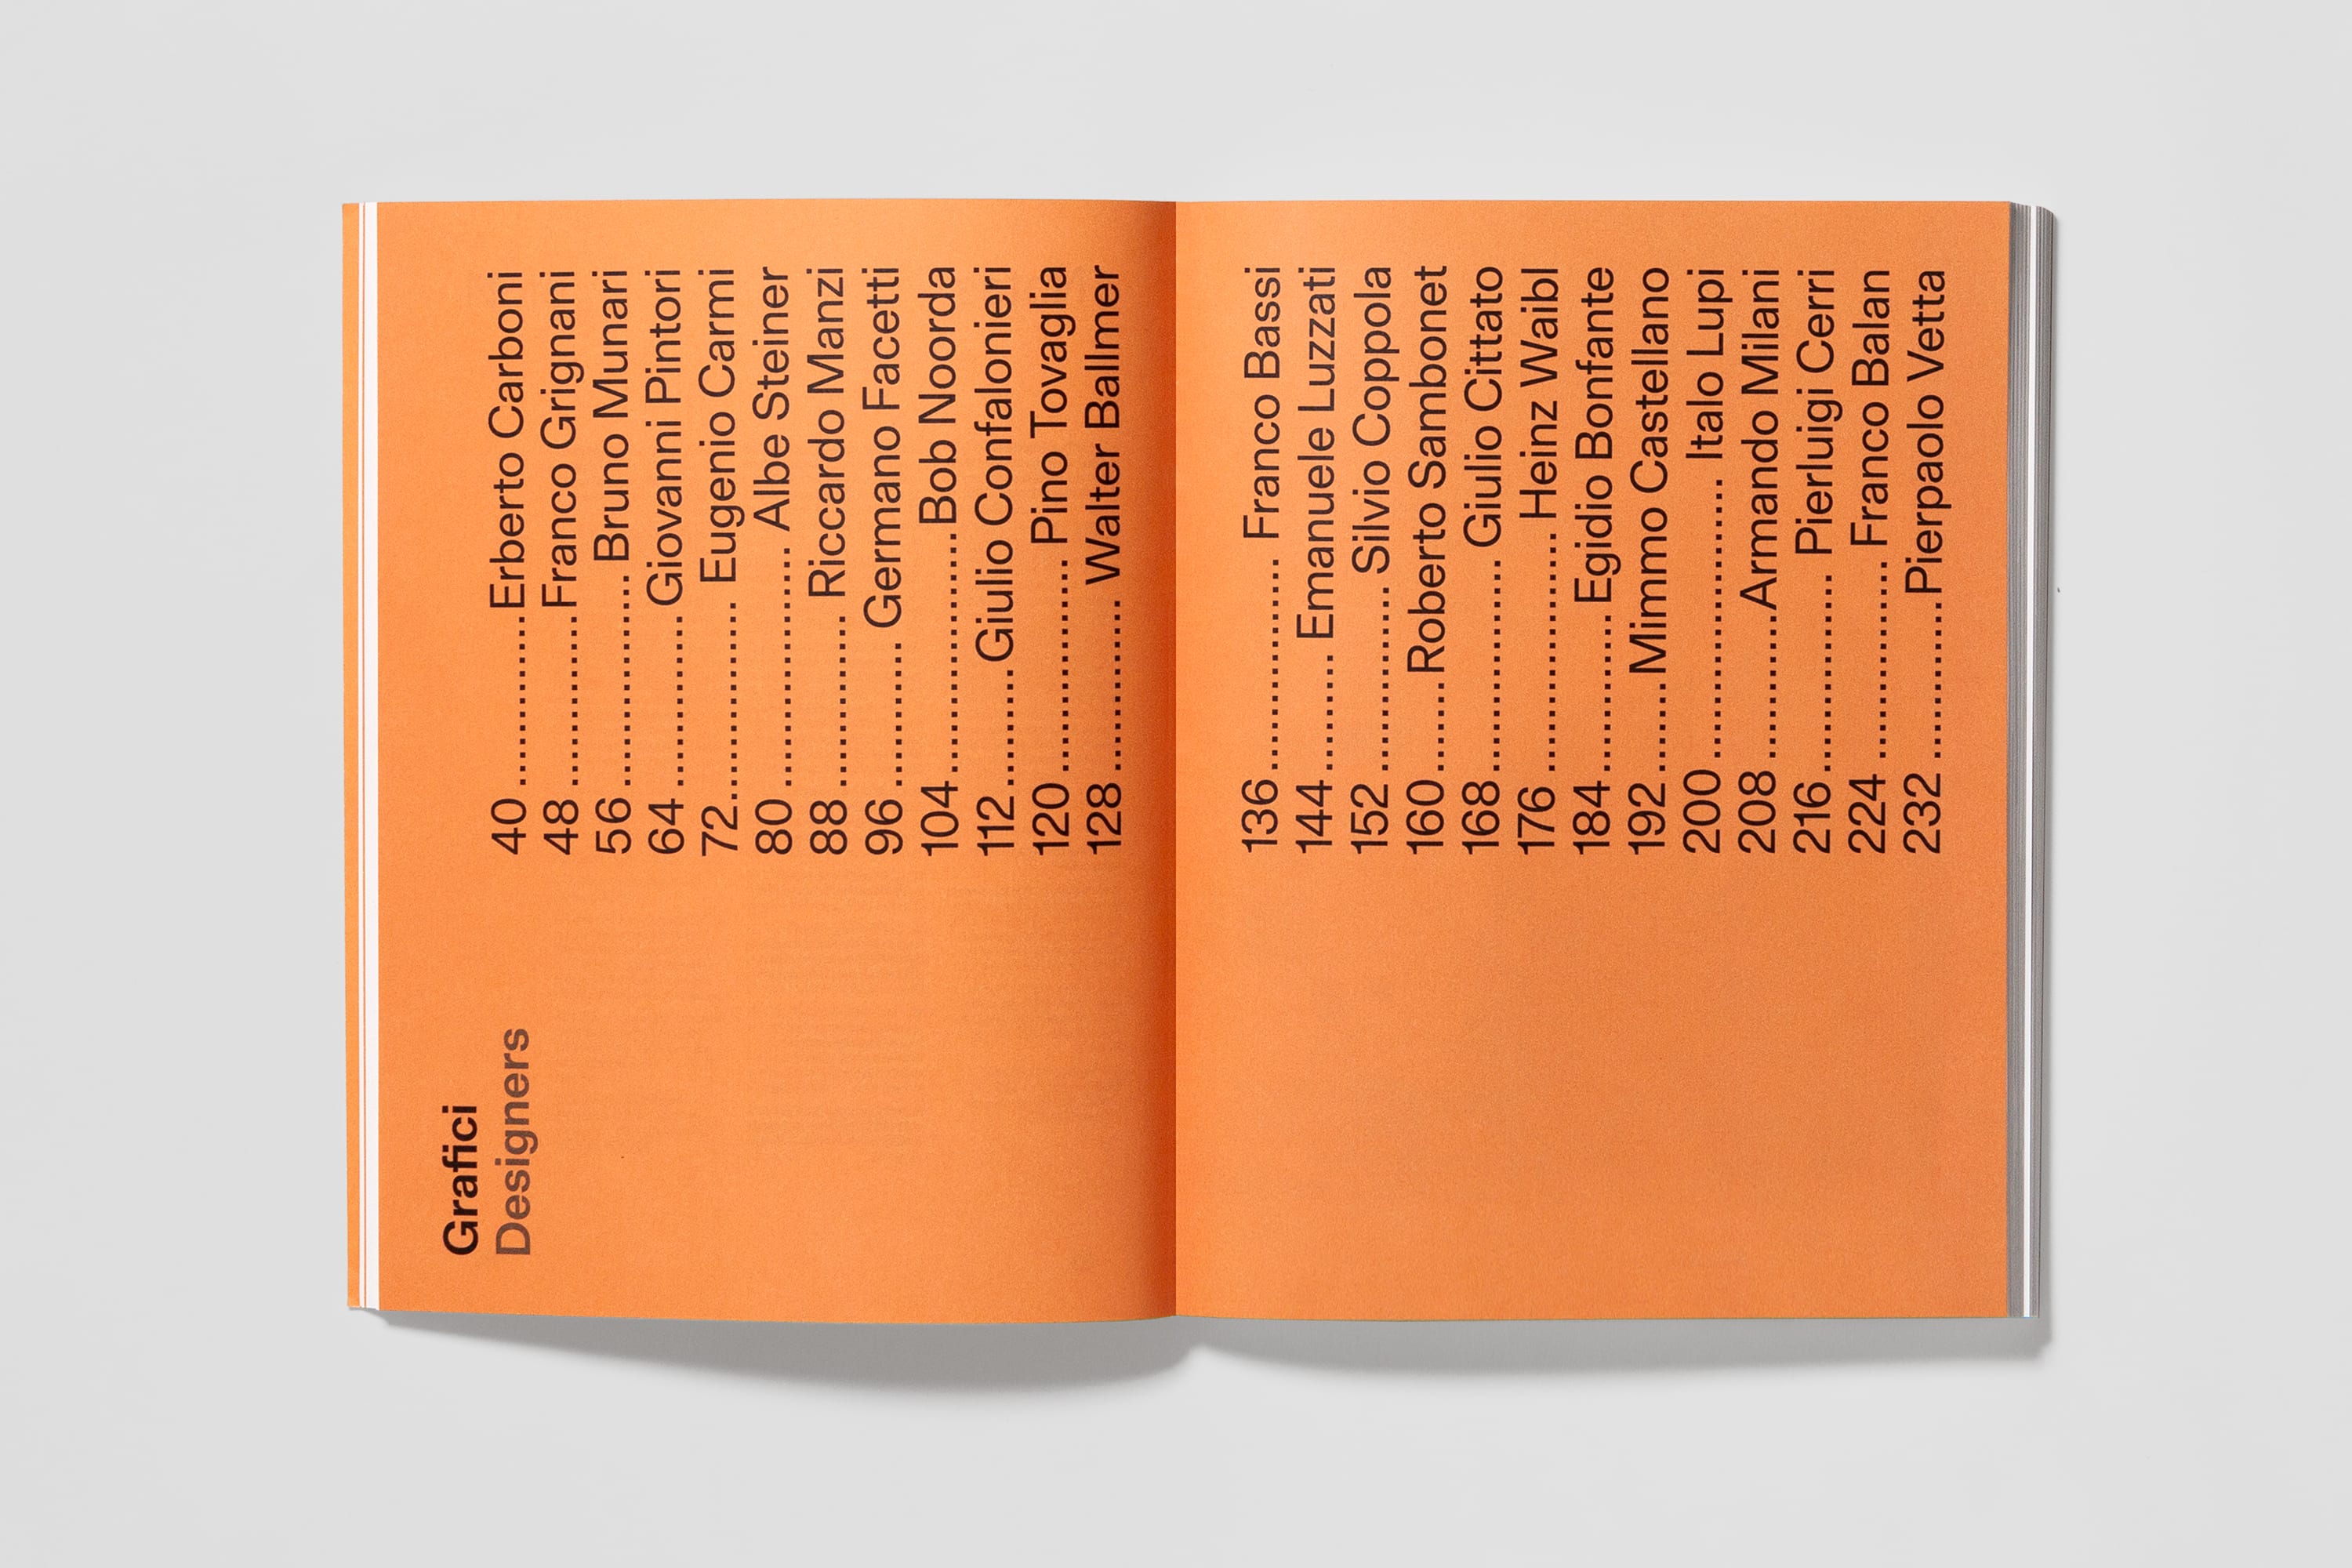 Grafici
Designers
40 .............Erberto Carboni
48 .............Franco Grignani
56 ................Bruno Munari
64 .............Giovanni Pintori
72............... Eugenio Carmi
80 .................. Albe Steiner
88 ............. Riccardo Manzi
96 ........... Germano Facetti
104...................Bob Noorda
112 .........Giulio Confalonieri
120 ................ Pino Tovaglia
128 ............. Walter Ballmer
136 ................ Franco Bassi
144 ......... Emanuele Luzzati
152 .............. Silvio Coppola
160 .......Roberto Sambonet
168 ................ Giulio Cittato
176 .................. Heinz Waibl
184 ............ Egidio Bonfante
192 .......Mimmo Castellano
200 ..................... Italo Lupi
208 ...........Armando Milani
216 ............... Pierluigi Cerri
224 ............... Franco Balan
232 ............Pierpaolo Vetta